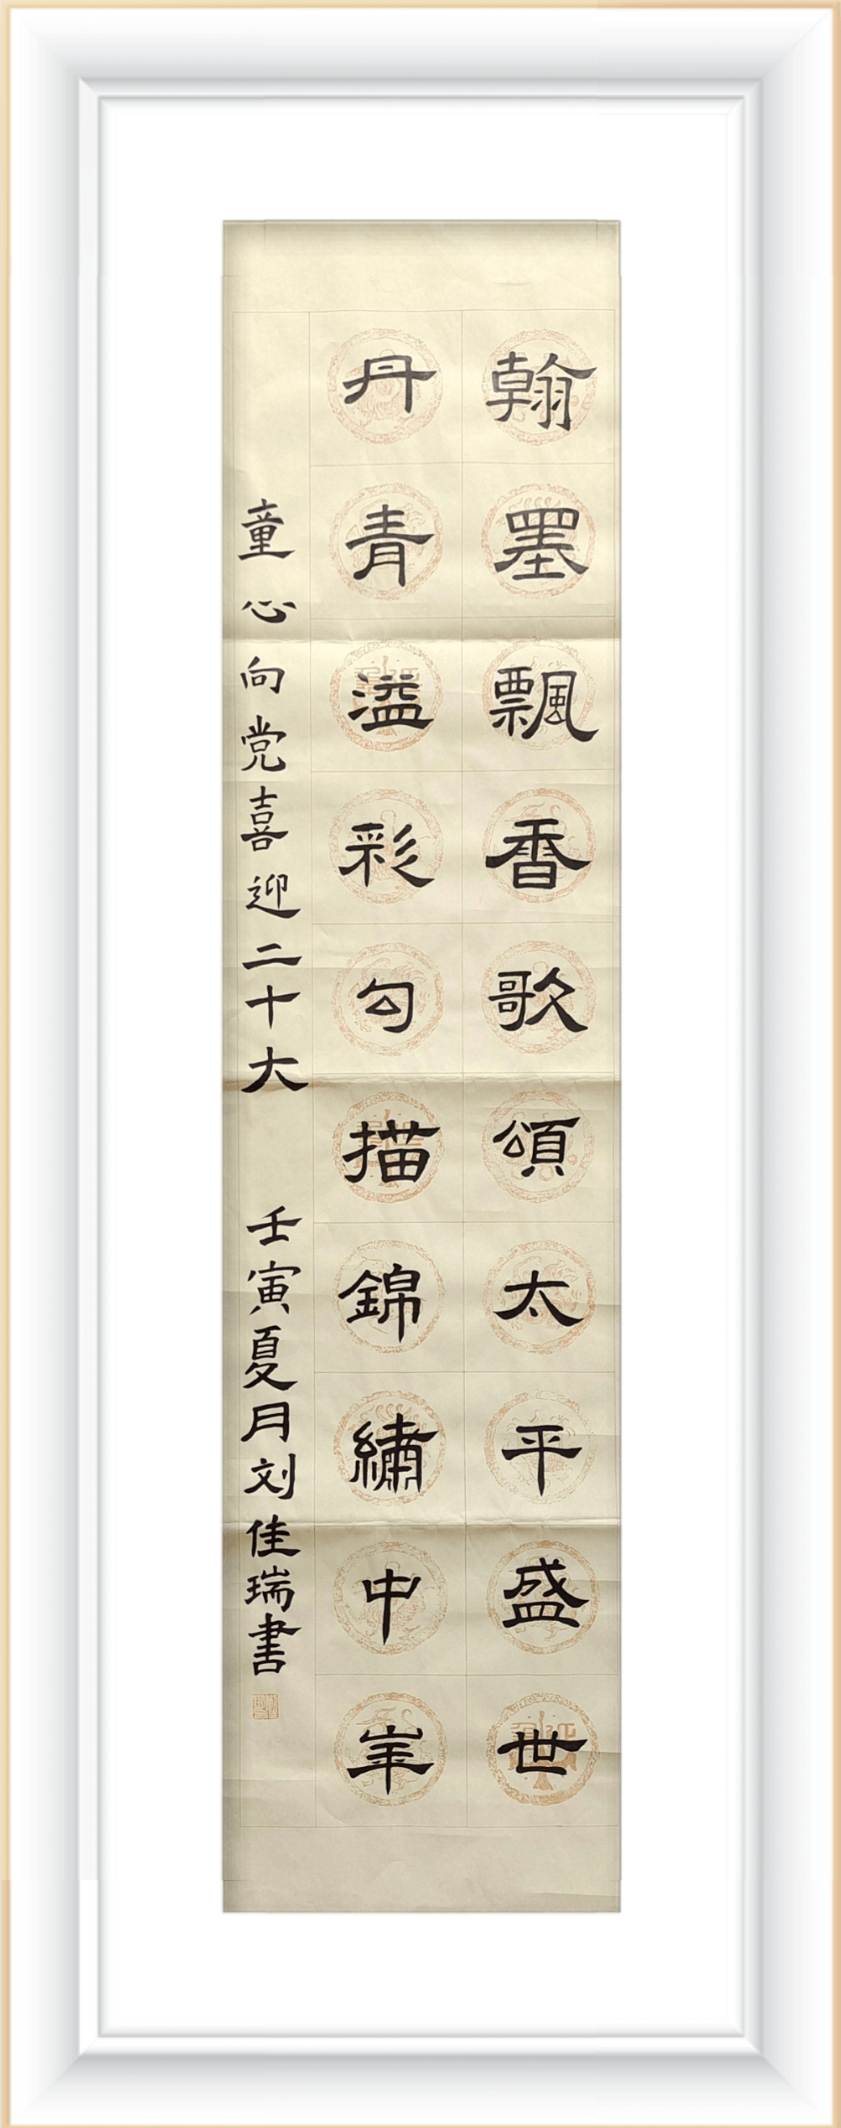 翰墨飄香歌頌太平盛世
丹青溢彩勾描錦繡中華
童心向党喜迎二十大 壬寅夏月刘佳瑞書